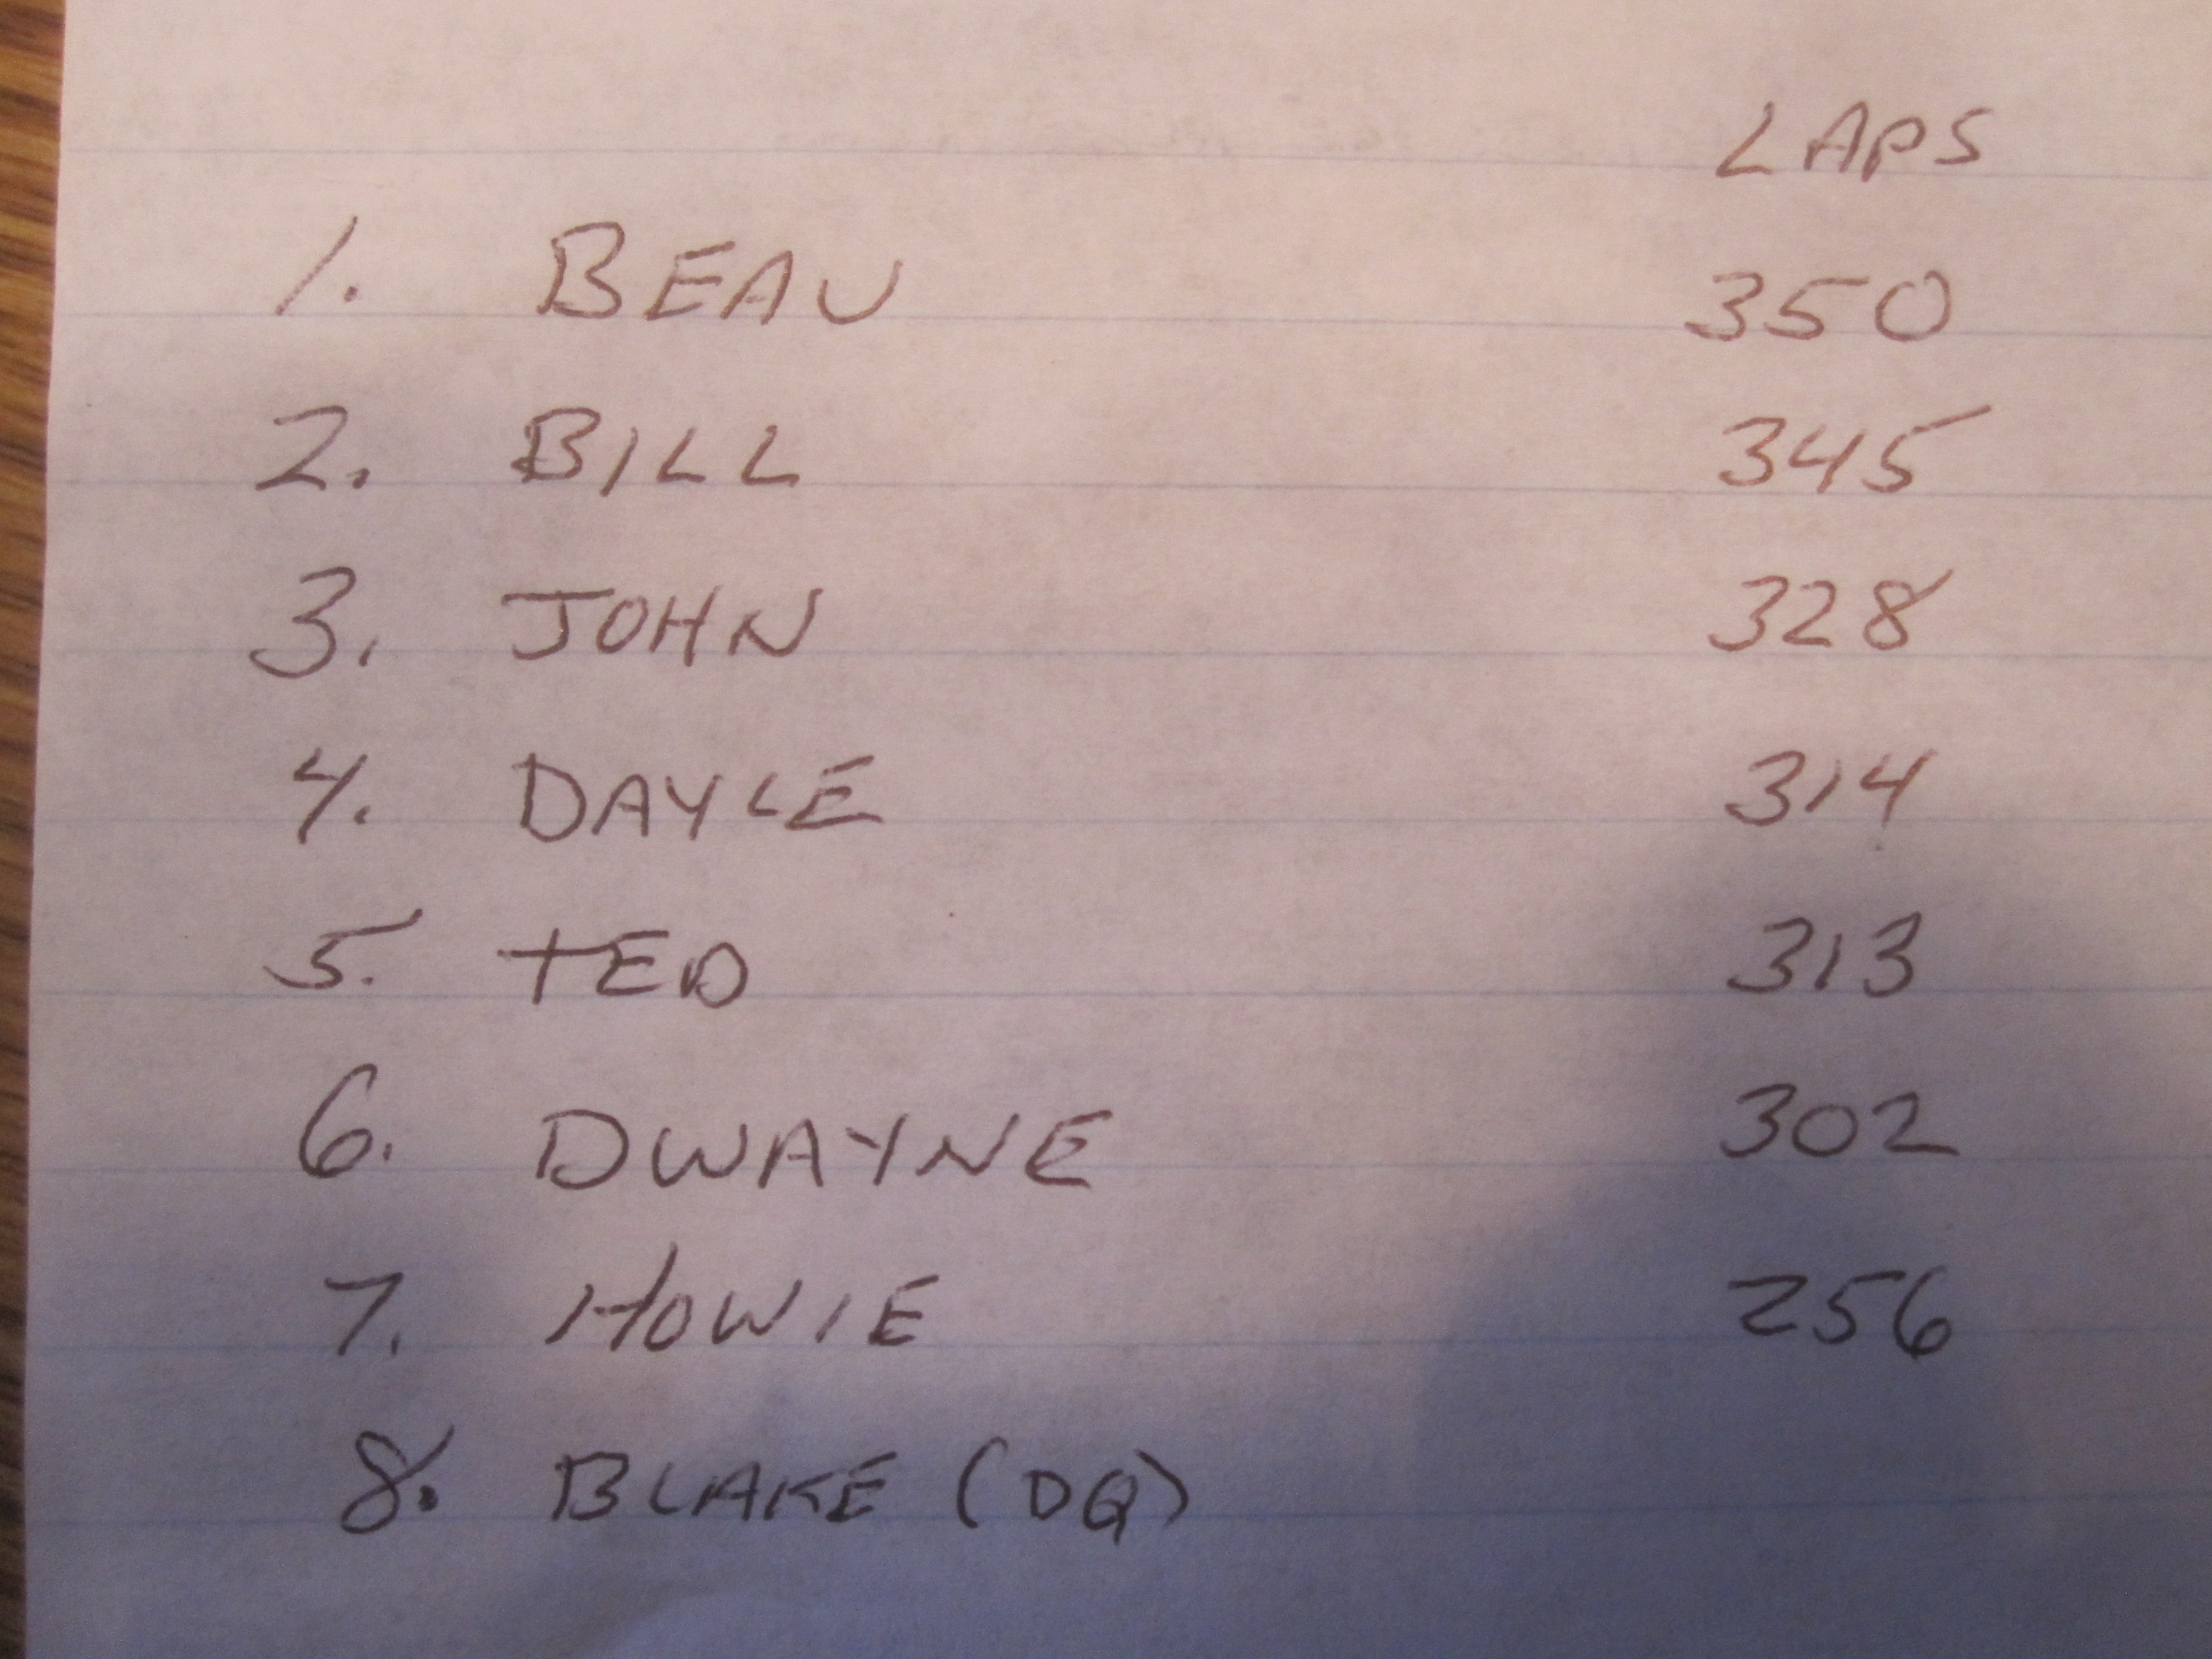 LAPS
1. BEAU 350
2. BILL 345
3. JOHN 328
4. DAYLE 314
5. TED 313
6. DWAYNE 302
7. HOWIE 256
8. BLAKE (DQ)